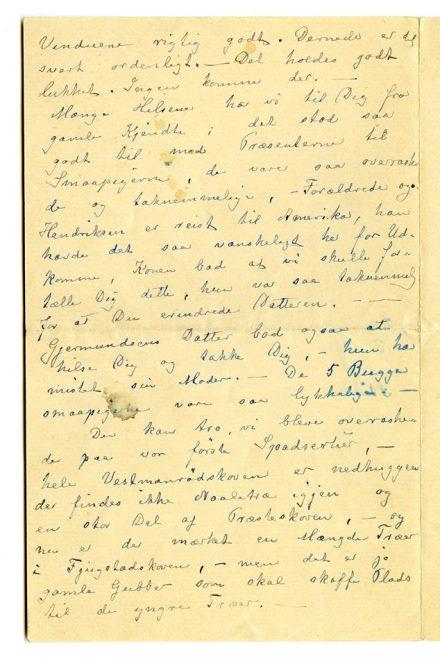 Vinduene rigtig godt. Dernede er det
svært ordenligt. — Det holdes godt
lukket. Ingen komme der. —
Mange Hilsene har vi til Dig fra
gamle Kjendte i det stod saa
godt til med Præsenterne til
Smaapigerne, de vare saa overraske
de og taknemmelige, — Forældrede og.
Hendriksen er reist til Amerika, han
havde det saa vanskeligt her for Ud-
komme, Konen bad at vi skulle for-
tælle Dig dette, hun var saa taknemmelig
for at Du erindrede Datteren. — —
Gjermundsens Datter bad ogsaa at
hilse Dig og takke Dig, — hun har
mistet sin Moder. — De 5 Bugge
smaapigerne vare saa lykkelige —
Du kan tro, vi bleve overraske
de paa vor förste Spadsertur, —
hele Vestmanrödskoven er nedhuggen
der findes ikke Naaletræ igjen og
en stor Del af Præsteskoven, — og
nu er de mærket en Mængde Træer
i Fjugstadskoven, — men det er jo
gamle Gubber som skal skaffe Plads
til de yngre Træer. —